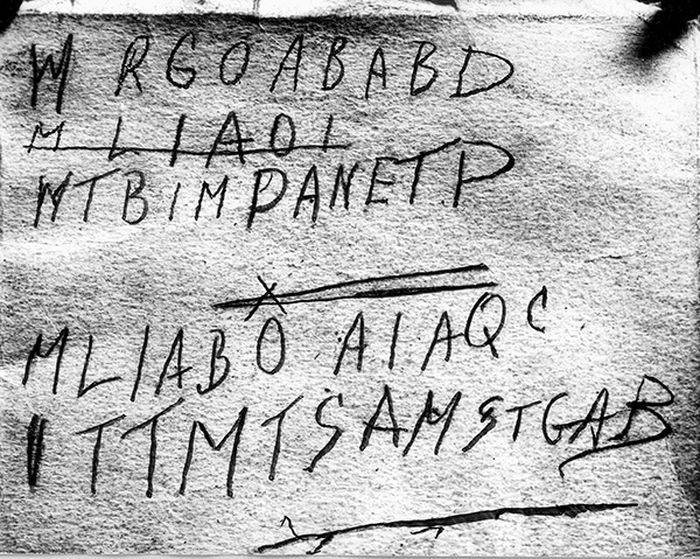 W RGOABABD
M L I A O I
WTBIMPANETP
MLIABO AIAQC
ITTMTSAMSTGAB